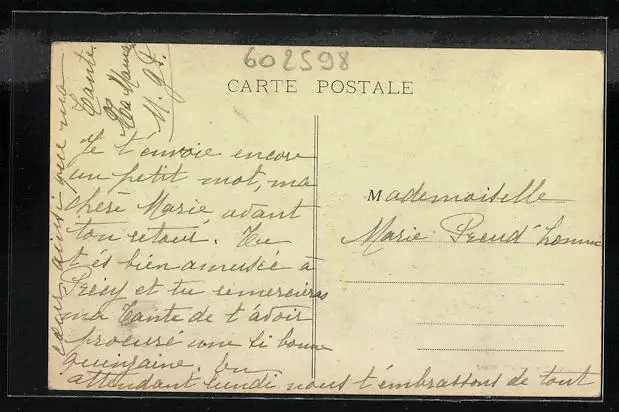 602598
CARTE POSTALE
Je t'envoie encore
un petit mot, ma
chère Marie avant
ton retour. Tu
t'és bien amusée à
Précy et tu remercieras
ma Tante de t'avoir
procuré une si bonne
quinzaine. En
attendant lundi nous t'embrassons de tout
cœur ainsi que ma
Tante
Ta Maman
M. G. P.
Mademoiselle
Marie Preud'homme